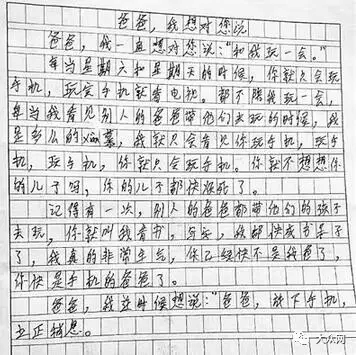 爸爸,我想对您说
爸爸,我一直想对您说:“和我玩一会。”
每当星期六和星期天的时候,你就只会玩
手机,玩完手机就看电视。都不陪我玩一会,
每当我看见别人的爸爸带他们去玩的时候,我
是多么的羡慕,我就只会看见你玩手机,玩手
机,玩手机,你就只会玩手机。你就不想想你
的儿子吗,你的儿子都快疯死了。
记得有一次,别人的爸爸都带他们的孩子
去玩,你就叫我看书,写字,我都快成书呆子
了,我真的非常生气,你已经快不是我爸了,
你快是手机的爸爸了。
爸爸,我这时候想说:“爸爸,放下手机,
立正稍息。
大众网